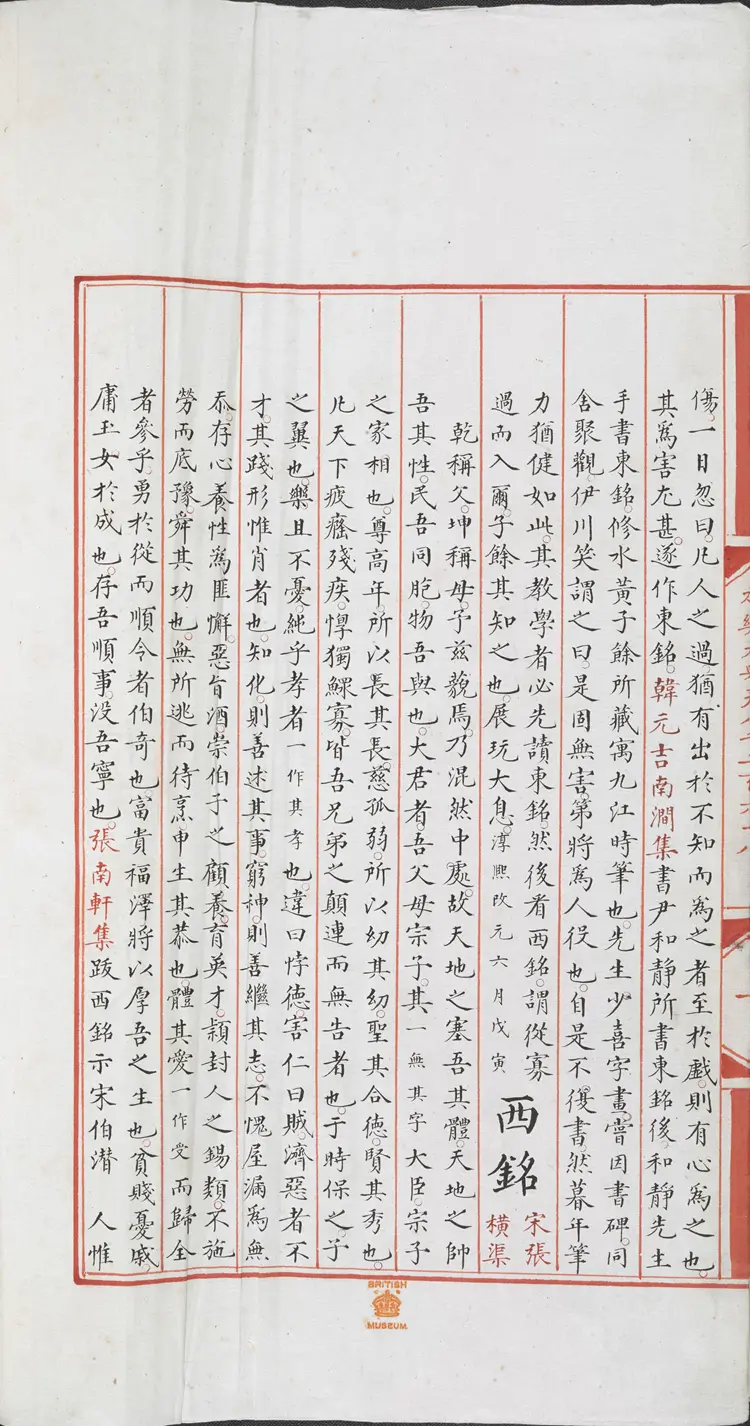 傷。一日忽曰。凡人之過。猶有出於不知而為之者。至於戲。則有心為之也。
其為害尤甚。遂作東銘。韓元吉南澗集書尹和靜所書東銘後。和靜先生
手書東銘。修水黃子餘所藏寓九江時筆也。先生少喜字畫。嘗因書碑。同
舍聚觀。伊川笑謂之曰。是固無害。第將為人役也。自是不復書。然暮年筆
力猶健如此。其教學者必先讀東銘。然後看西銘。謂從寡
過而入爾。子餘其知之也。展玩大息。淳熙改元六月戊寅
西銘
宋張
橫渠
乾稱父。坤稱母。予茲藐焉。乃混然中處。故天地之塞吾其體。天地之帥
吾其性。民吾同胞。物吾與也。大君者。吾父母宗子。其一無其字大臣。宗子
之家相也。尊高年。所以長其長。慈孤弱。所以幼其幼。聖其合德。賢其秀也。
凡天下疲癃殘疾。惸獨鰥寡。皆吾兄弟之顛連而無告者也。于時保之。子
之翼也。樂且不憂。純乎孝者一作其孝也。違曰悖德。害仁曰賊。濟惡者不
才。其踐形惟肖者也。知化。則善述其事。窮神。則善繼其志。不愧屋漏為無
忝。存心養性為匪懈。惡旨酒崇伯子之顧養。育英才。潁封人之錫類。不施
勞而底豫。舜其功也。無所逃而待烹申生其恭也。體其愛一作受而歸全
者參乎。勇於從而順令者伯奇也。富貴福澤將以厚吾之生也。貧賤憂戚
庸玉女於成也。存吾順事。沒吾寧也。張南軒集跋西銘示宋伯潛 人惟
BRITISH
MUSEUM